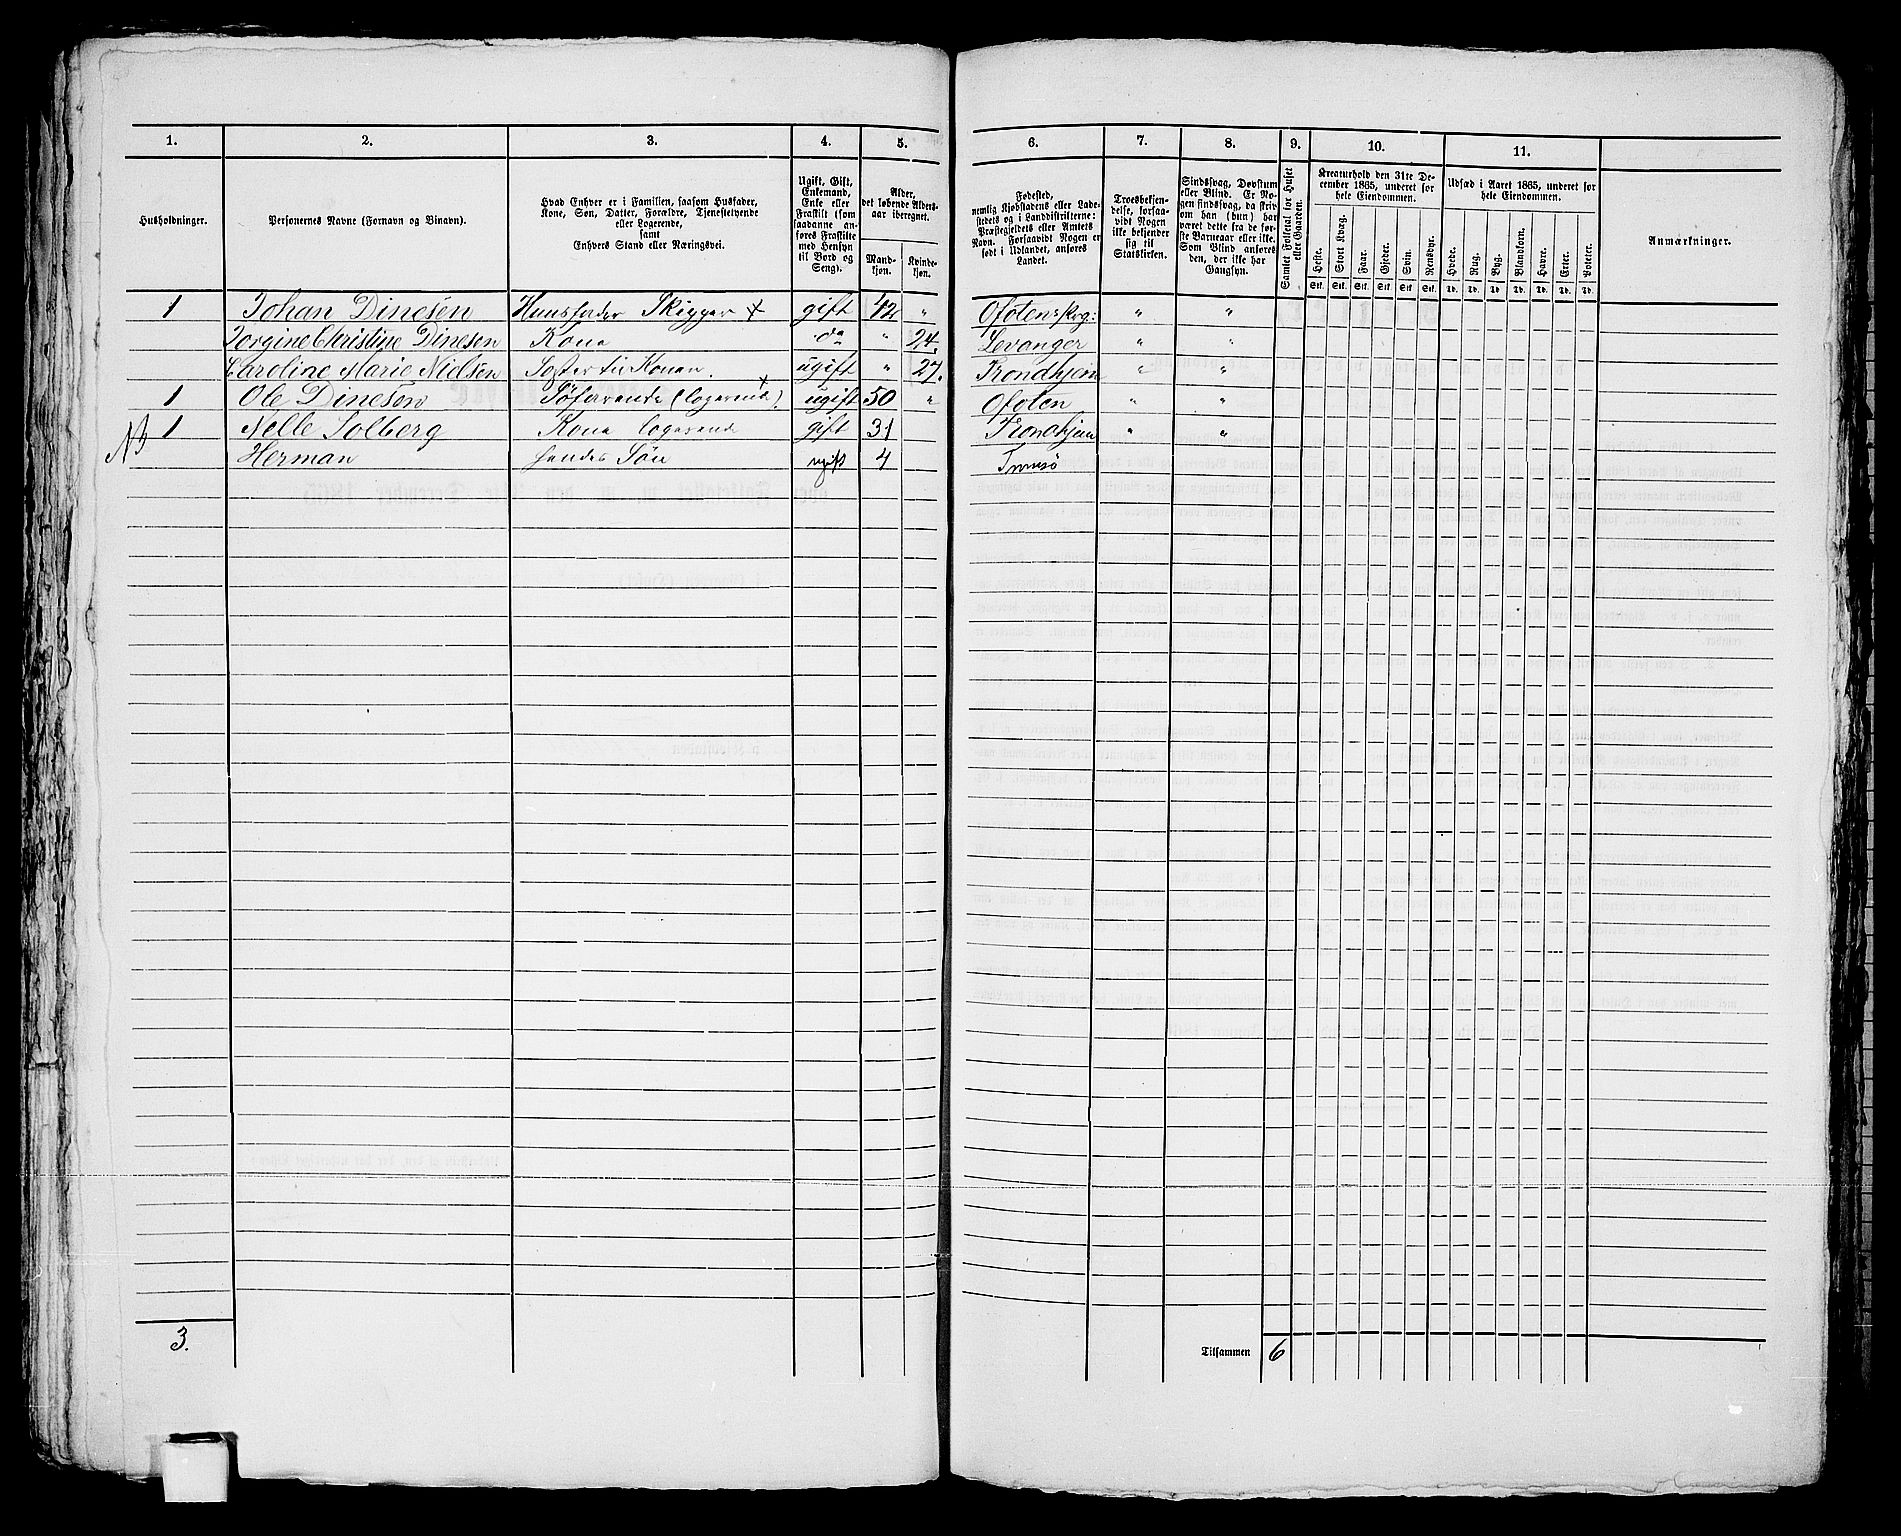 1. 2. 3. 4. 5. 6. 7. 8. 9. 10. 11.
Husholdninger.
Personernes Navne (Fornavn og Binavn).
Hvad Enhver er i Familien, saasom Husfader,
Kone, Søn, Datter, Forældre, Tjenestetyende
eller Logerende,
samt
Enhvers Stand eller Næringsvei.
Ugift, Gift,
Enkemand,
Enke eller
Fraskilt (som
saadanne an-
føres Fraskilte
med Hensyn
til Bord og
Seng).
Alder,
det løbende Alders-
aar iberegnet.
Mand-
kjøn.
Kvinde-
kjøn.
Fødested,
nemlig Kjøbstadens eller Lade-
stedets og i Landdistrikterne:
Præstegjeldets eller Amtets
Navn. Forsaavidt Nogen er
født i Udlandet, anføres
Landet.
Troesbekjen-
delse, forsaa-
vidt Nogen
ikke bekjender
sig til
Statskirken.
Sindssvag, Døvstum
eller Blind. Er No-
gen sindssvag, da skriv
om han (hun) har
været dette fra de før-
ste Barneaar eller ikke.
Som Blind anføres
den, der ikke har
Gangsyn.
Samlet Folketal for Huset
eller Gaarden.
Kreaturhold den 31te De-
cember 1865, underet for
hele Eiendommen.
Heste. Stort Kvæg. Faar. Gjeder. Svin. Rensdyr.
Stk. Stk. Stk. Stk. Stk. Stk.
Udsæd i Aaret 1865, underet for
hele Eiendommen.
Hvede. Rug. Byg. Blandkorn. Havre. Erter. Poteter.
Td. Td. Td. Td. Td. Td. Td.
Anmærkninger.
1 Johan Dinesen Huusfader Skipper + gift 42 " Ofotens " "
Jorgine Christine Dinesen Kone do " 24. Levanger " "
Caroline Marie Nielsen Søster til Konen. ugift " 27. Trondhjem " "
1 Ole Dinesen Søfarende (logerende). + ugift 50 " Ofoten " "
1 Nelle Solberg Kone logerende gift 31 Trondhjem " "
NB Herman hendes Søn ugift 4 Tromsø
3.
Tilsammen 6